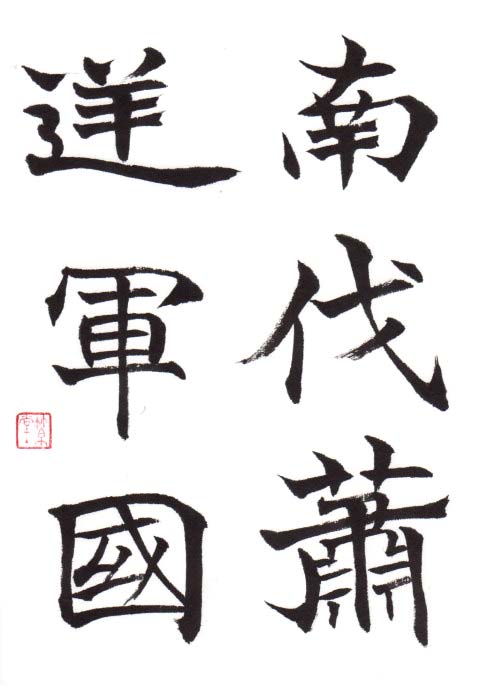 南伐蕭
逆軍國